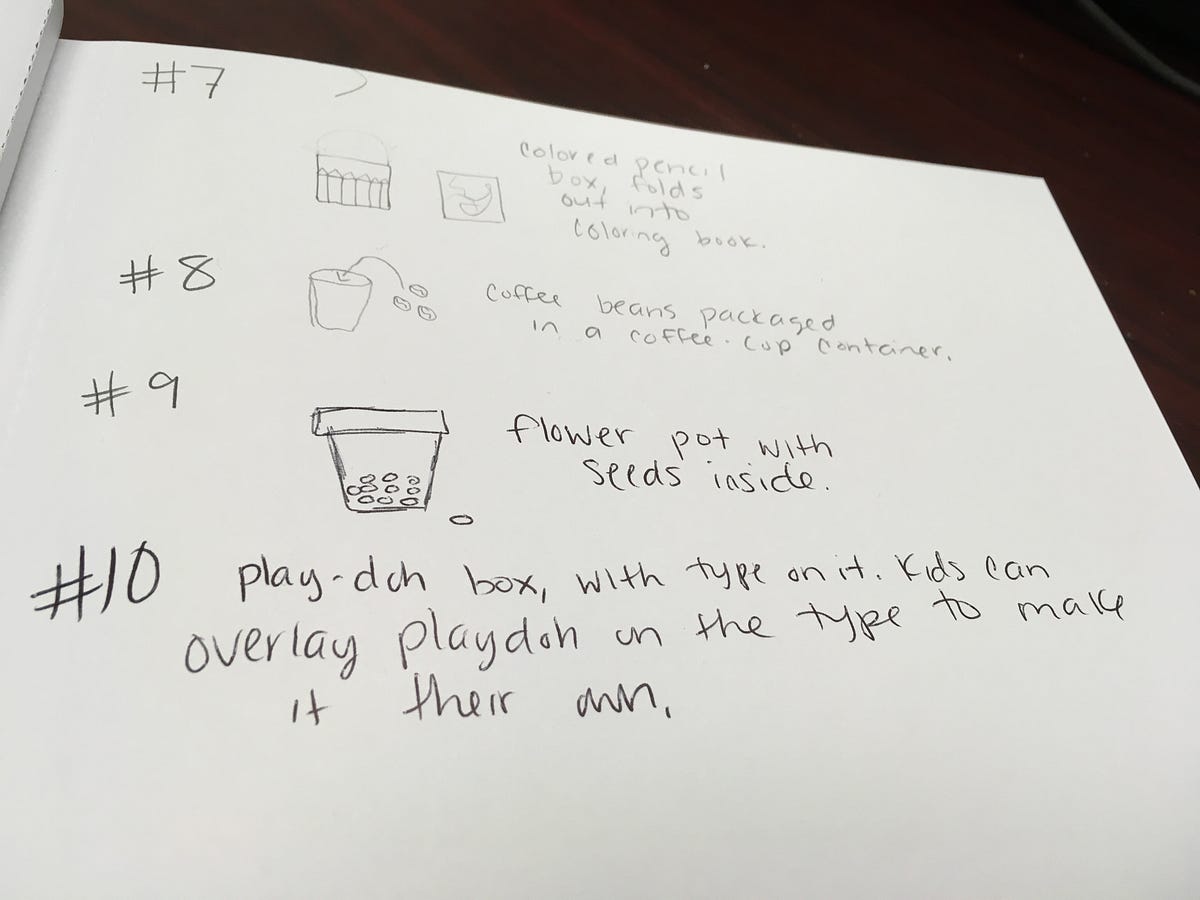 #7
colored pencil
box, folds
out into
coloring book.
#8
coffee beans packaged
in a coffee-cup container.
#9
flower pot with
seeds inside.
#10 play-doh box, with type on it. Kids can
overlay playdoh on the type to make
it their own.